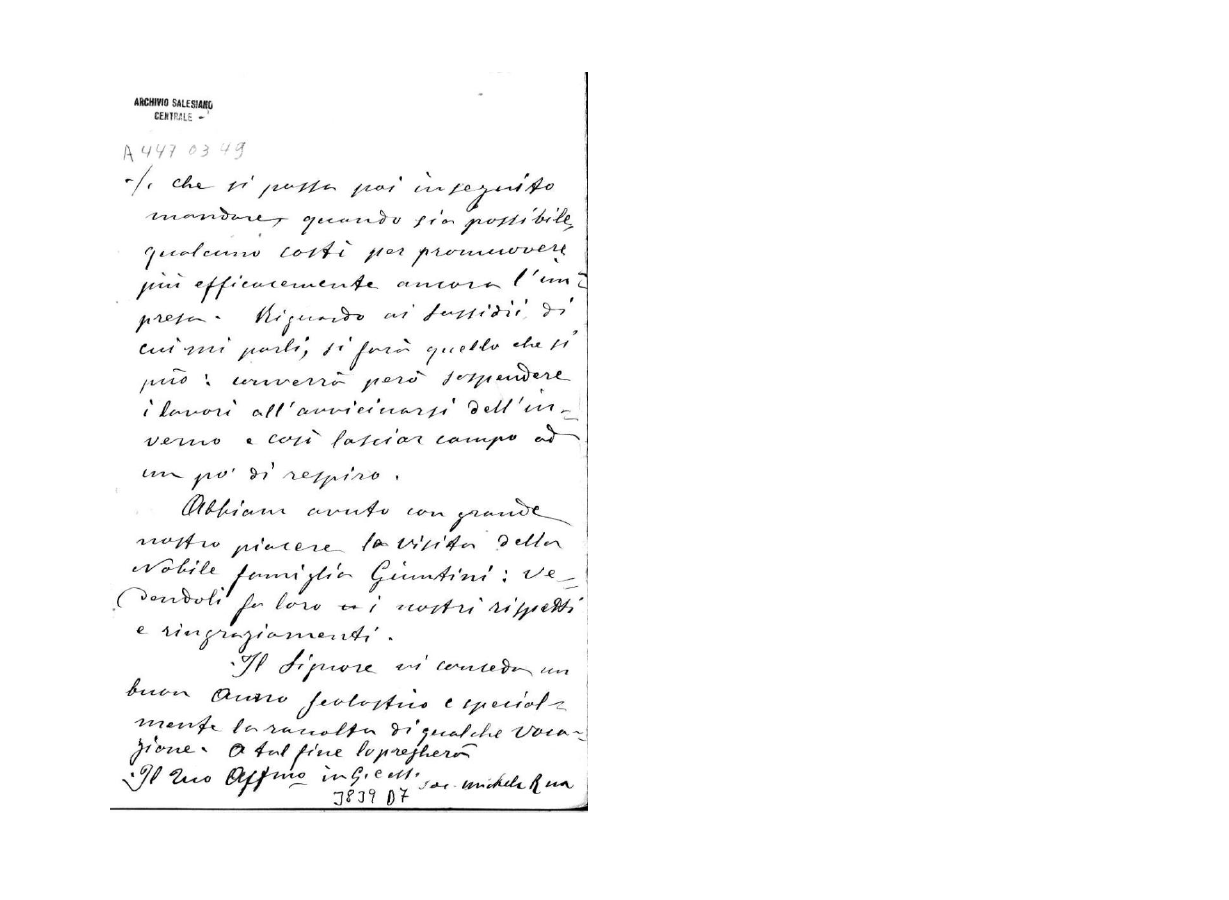 ARCHIVIO SALESIANO
CENTRALE
A 447 03 49
·/. che si possa poi in seguito
mandare, quando sia possibile,
qualcuno costì per promuovere
più efficacemente ancora l'im=
presa. Riguardo ai sussidii di
cui mi parli, si farà quello che si
può: converrà però sospendere
i lavori all'avvicinarsi dell'in=
verno e così lasciar campo ad
un po' di respiro.
Abbiam avuto con grande
nostro piacere la visita della
Nobile famiglia Giuntini: ve=
dendoli fa loro i nostri rispetti
e ringraziamenti.
Il Signore vi conceda un
buon anno scolastico e special=
mente la raccolta di qualche voca=
zione. A tal fine lo pregherà
Il tuo Affmo in G. e M.
Sac. Michele Rua
3839 D7